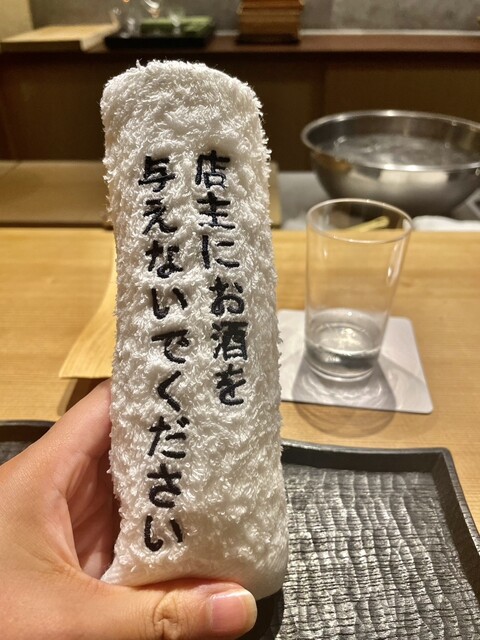 店主にお酒を
与えないでください